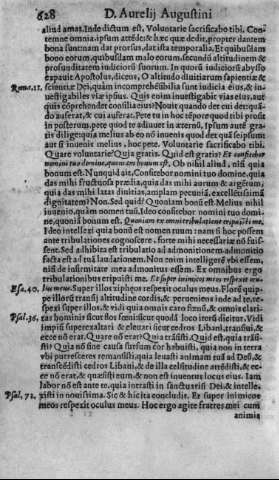 628 D. Aurelij Augustini
aliud amas. Inde dictum est, Voluntarie sacrificabo tibi. Con-
temne omnia. ipsum attēde: & hęc quę dedit, propter dantem
bona sunt. nam dat prorsus, dat ista temporalia. Et quibusdam
bono eorum, quibusdam malo eorum, secundū altitudinem &
profunditatem iudiciorū suorum. In quorū iudiciorū abysso
expauit Apostolus, dicens, O altitudo diuitiarum sapientiæ &
Roma. 11. scientiæ Dei, quàm incomprehēsibilia sunt iudicia eius, & in-
uestigabiles viæ ipsius. Quis enim inuestigabit vias eius, aut
quis cōprehendet consilia eius? Nouit quando det cui det: quā-
do auferat, & cui auferat. Pete tu in hoc tēpore quod tibi prosit
in posterum, pete quod te adiuuet in æternū, Ipsum autē gra-
tis dilige: quia melius ab eo nō inuenis quod det quàm seipsum
aut si inuenis melius, hoc pete. Voluntarie sacrificabo tibi.
Quare voluntarie? Quia gratis. Quid est gratis? Et confitebor
nomini tuo domine, quoniam bonum est. Ob nihil aliud, nisi quia
bonum est. Nunquid ait, Confitebor nomini tuo domine, quia
das mihi fructuosa prædia, quia das mihi aurum & argētum,
quia das mihi latas diuitias, amplam pecuniā, excellētissimā
dignitatem? Non. Sed quid? Quoniam bonū est Melius nihil
inuenio, quàm nomen tuū, Ideo confitebor nomini tuo domi-
ne, quoniā bonum est. Quoniam ex omni tribulatione eripuisti me.
Ideo intellexi quia bonū est nomen tuum: nam si hoc possem
ante tribulationes cognoscere, forte mihi necessariæ nō fuis-
sent. Sed adhibita est tribulatio ad admonitionem. admonitio
facta est ad tuā laudationem. Non enim intelligerē vbi essem,
nisi de infirmitate mea admonitus essem. Ex omnibus ergo
tribulationibus eripuisti me. Et super inimicos meos respexit ocu-
Esa. 40. lus meus. Super illos ziphęos respexit oculus meus. Florē quip-
pe illorū transij altitudine cordis, & perueniens inde ad te, re-
spexi super illos, & vidi quia omnis caro fœnū, & omnis clari-
Psal. 36. tas hominis sicut flos fœni: sicut quodā loco item dicitur. Vidi
impiū superexaltari & eleuari sicut cedros Libani, transiui, &
ecce nō erat. Quare nō erat? Quia trāsisti. Quid est, quia trāsi-
sti? Quia nō sine causa sursum cor habuisti, quia non in terra
vbi putresceres remansisti. quia leuasti animam tuā ad Deū, &
transcēdisti cedros Libani, & de illa celsitudine attēdisti, & ec-
ce nō erat, & quæsisti eum, & non est inuentus locus eius. Iam
labor nō est ante te. quia intrasti in sanctuariū Dei, & intelle-
Psal. 72. xisti in nouissima. Sic & hic ita concludit. Ex super inimicos
meos respexit oculus meus. Hoc ergo agite fratres mei cum
animis